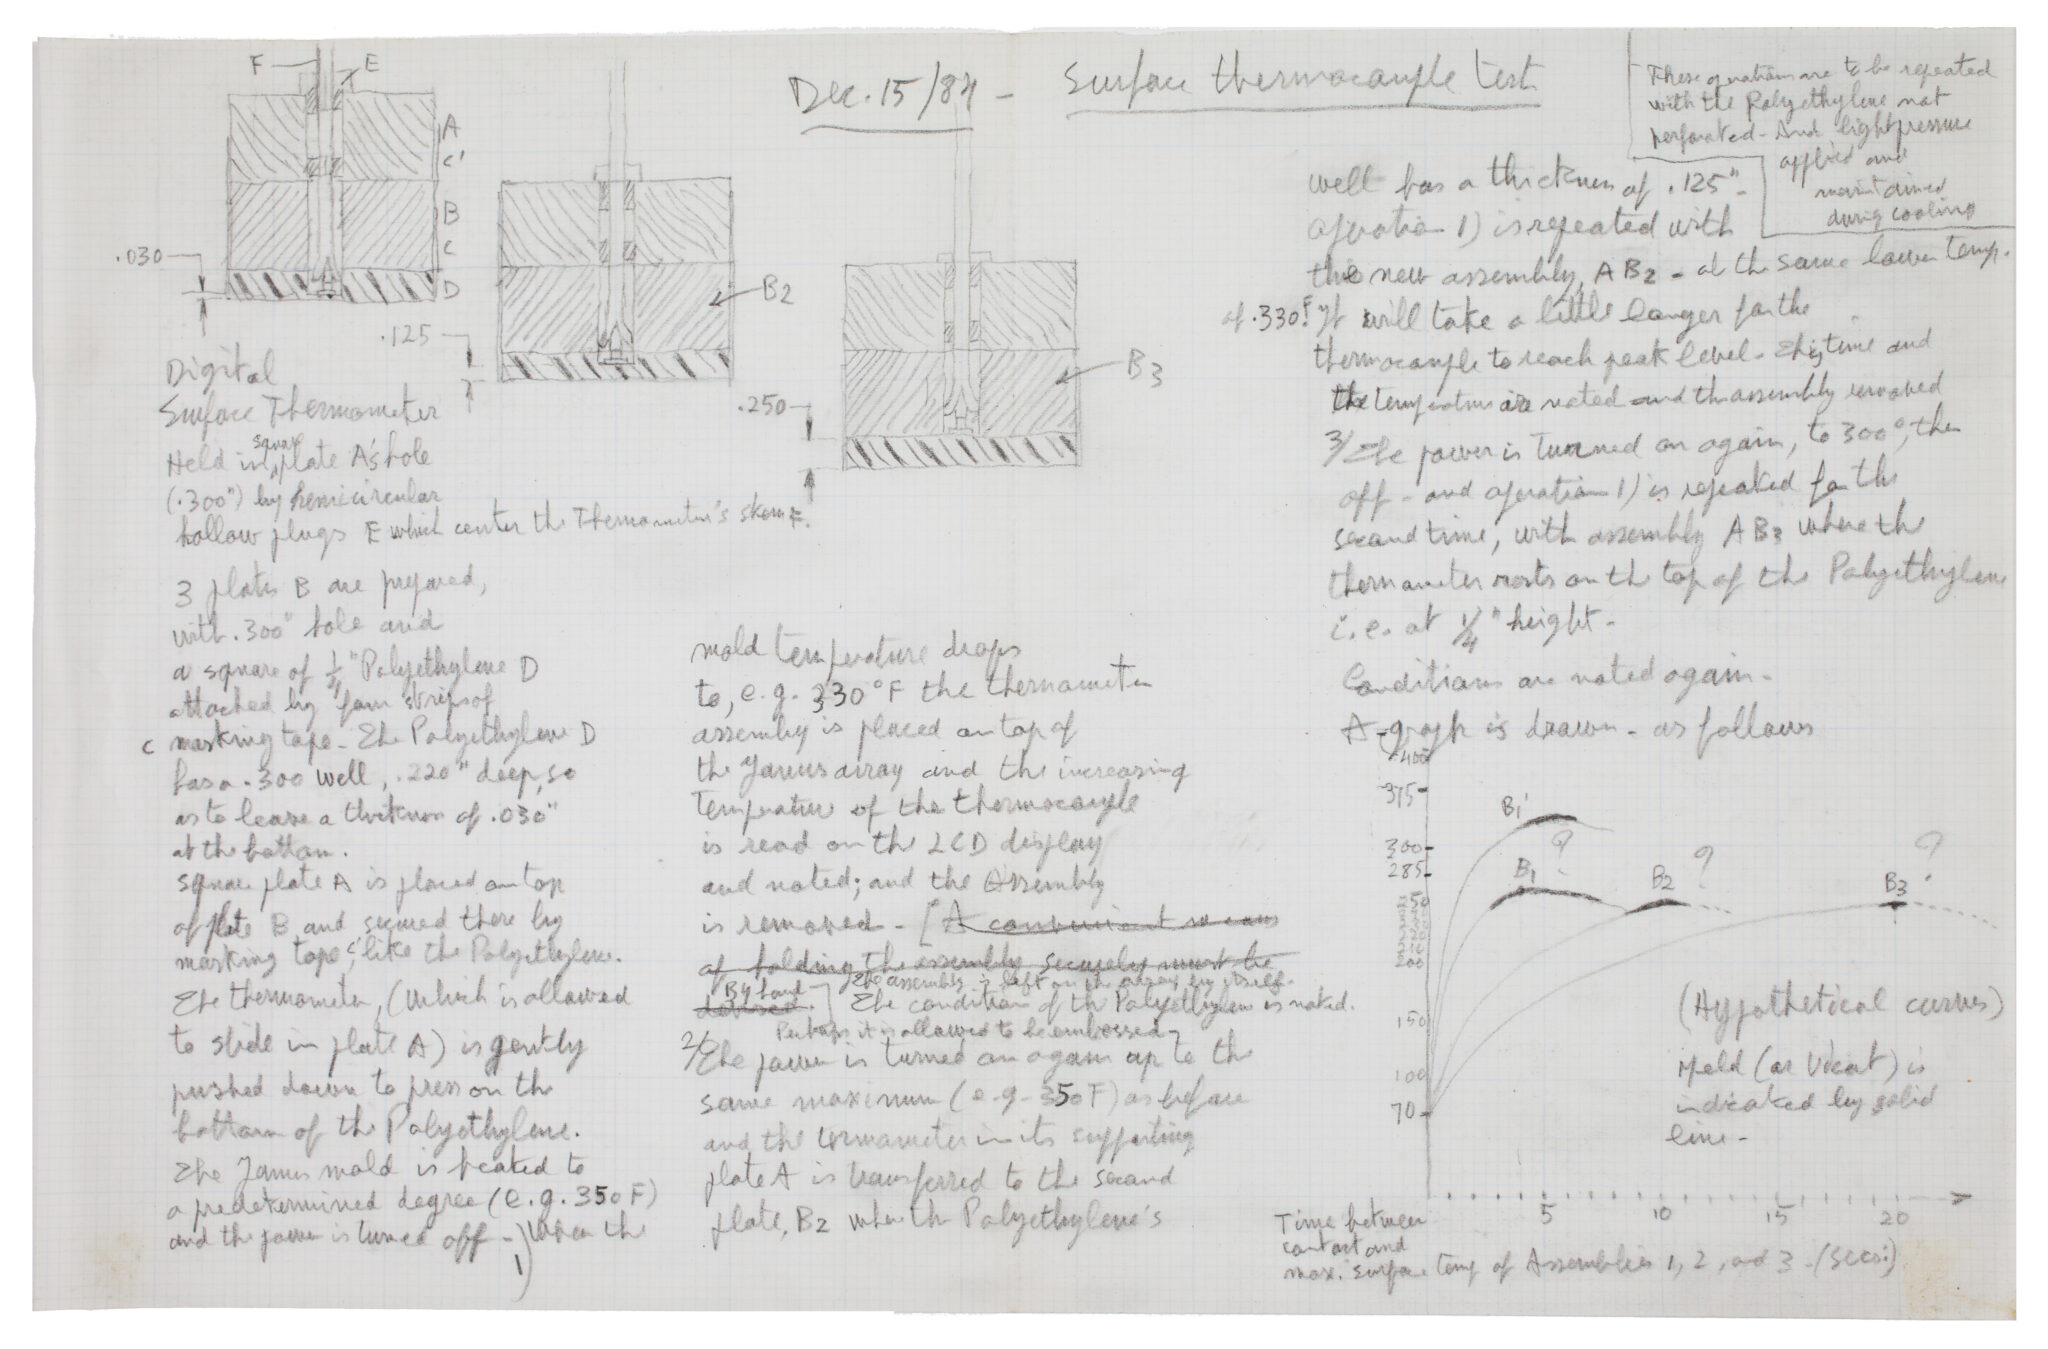 Dec. 15/84 - Surface thermocouple test
F
E
A
C'
B
C
D
.030
B2
.125
B3
.250
Digital
Surface Thermometer
Held in square plate A's hole
(.300") by hemicircular
hollow plugs E which center the Thermometer's stem F.
3 plates B are prepared,
with .300" hole and
a square of 1/4" Polyethylene D
attached by four strips of
c masking tape - The Polyethylene D
has a .300 well, .220" deep, so
as to leave a thickness of .030"
at the bottom.
Square plate A is placed on top
of plate B and secured there by
masking tape c' like the Polyethylene.
The thermometer, (which is allowed
to slide in plate A) is gently
pushed down to press on the
bottom of the Polyethylene.
The Janus mold is heated to
a predetermined degree (e.g. 350 F)
and the power is turned off - 1) When the
mold temperature drops
to, e.g. 330°F the thermometer
assembly is placed on top of
the Janus array and the increasing
temperature of the thermocouple
is read on the LCD display
and noted; and the Assembly
is removed - [A convenient means
of holding the assembly securely must be
devised. By hand - The assembly is left on the array by itself.
] The condition of the Polyethylene is noted.
Perhaps it is allowed to be embossed
2/ The power is turned on again up to the
same maximum (e.g. 350 F) as before
and the termometer in its supporting
plate A is transferred to the second
plate, B2 when the Polyethylene's
These operations are to be repeated
with the Polyethylene not
perforated - And light pressure
applied and
maintained
during cooling
well has a thickness of .125" -
operation 1) is repeated with
the new assembly, A B2 - at the same lower temp.
of .330°F It will take a little longer for the
thermocouple to reach peak level - This time and
the temperature are noted and the assembly removed
3/ The power is turned on again, to 300°, then
off - and operation 1) is repeated for the
second time, with assembly A B3 where the
thermometer rests on the top of the Polyethylene
i.e. at 1/4" height -
Conditions are noted again -
A graph is drawn - as follows
400
375
300
285
250
200
150
100
70
B1'
?
B1
?
B2
?
B3
(Hypothetical curves)
Meld (or Vicat) is
indicated by solid
line -
5 10 15 20
Time between
contact and
max. surface temp of Assemblies 1, 2, and 3 - (secs.)